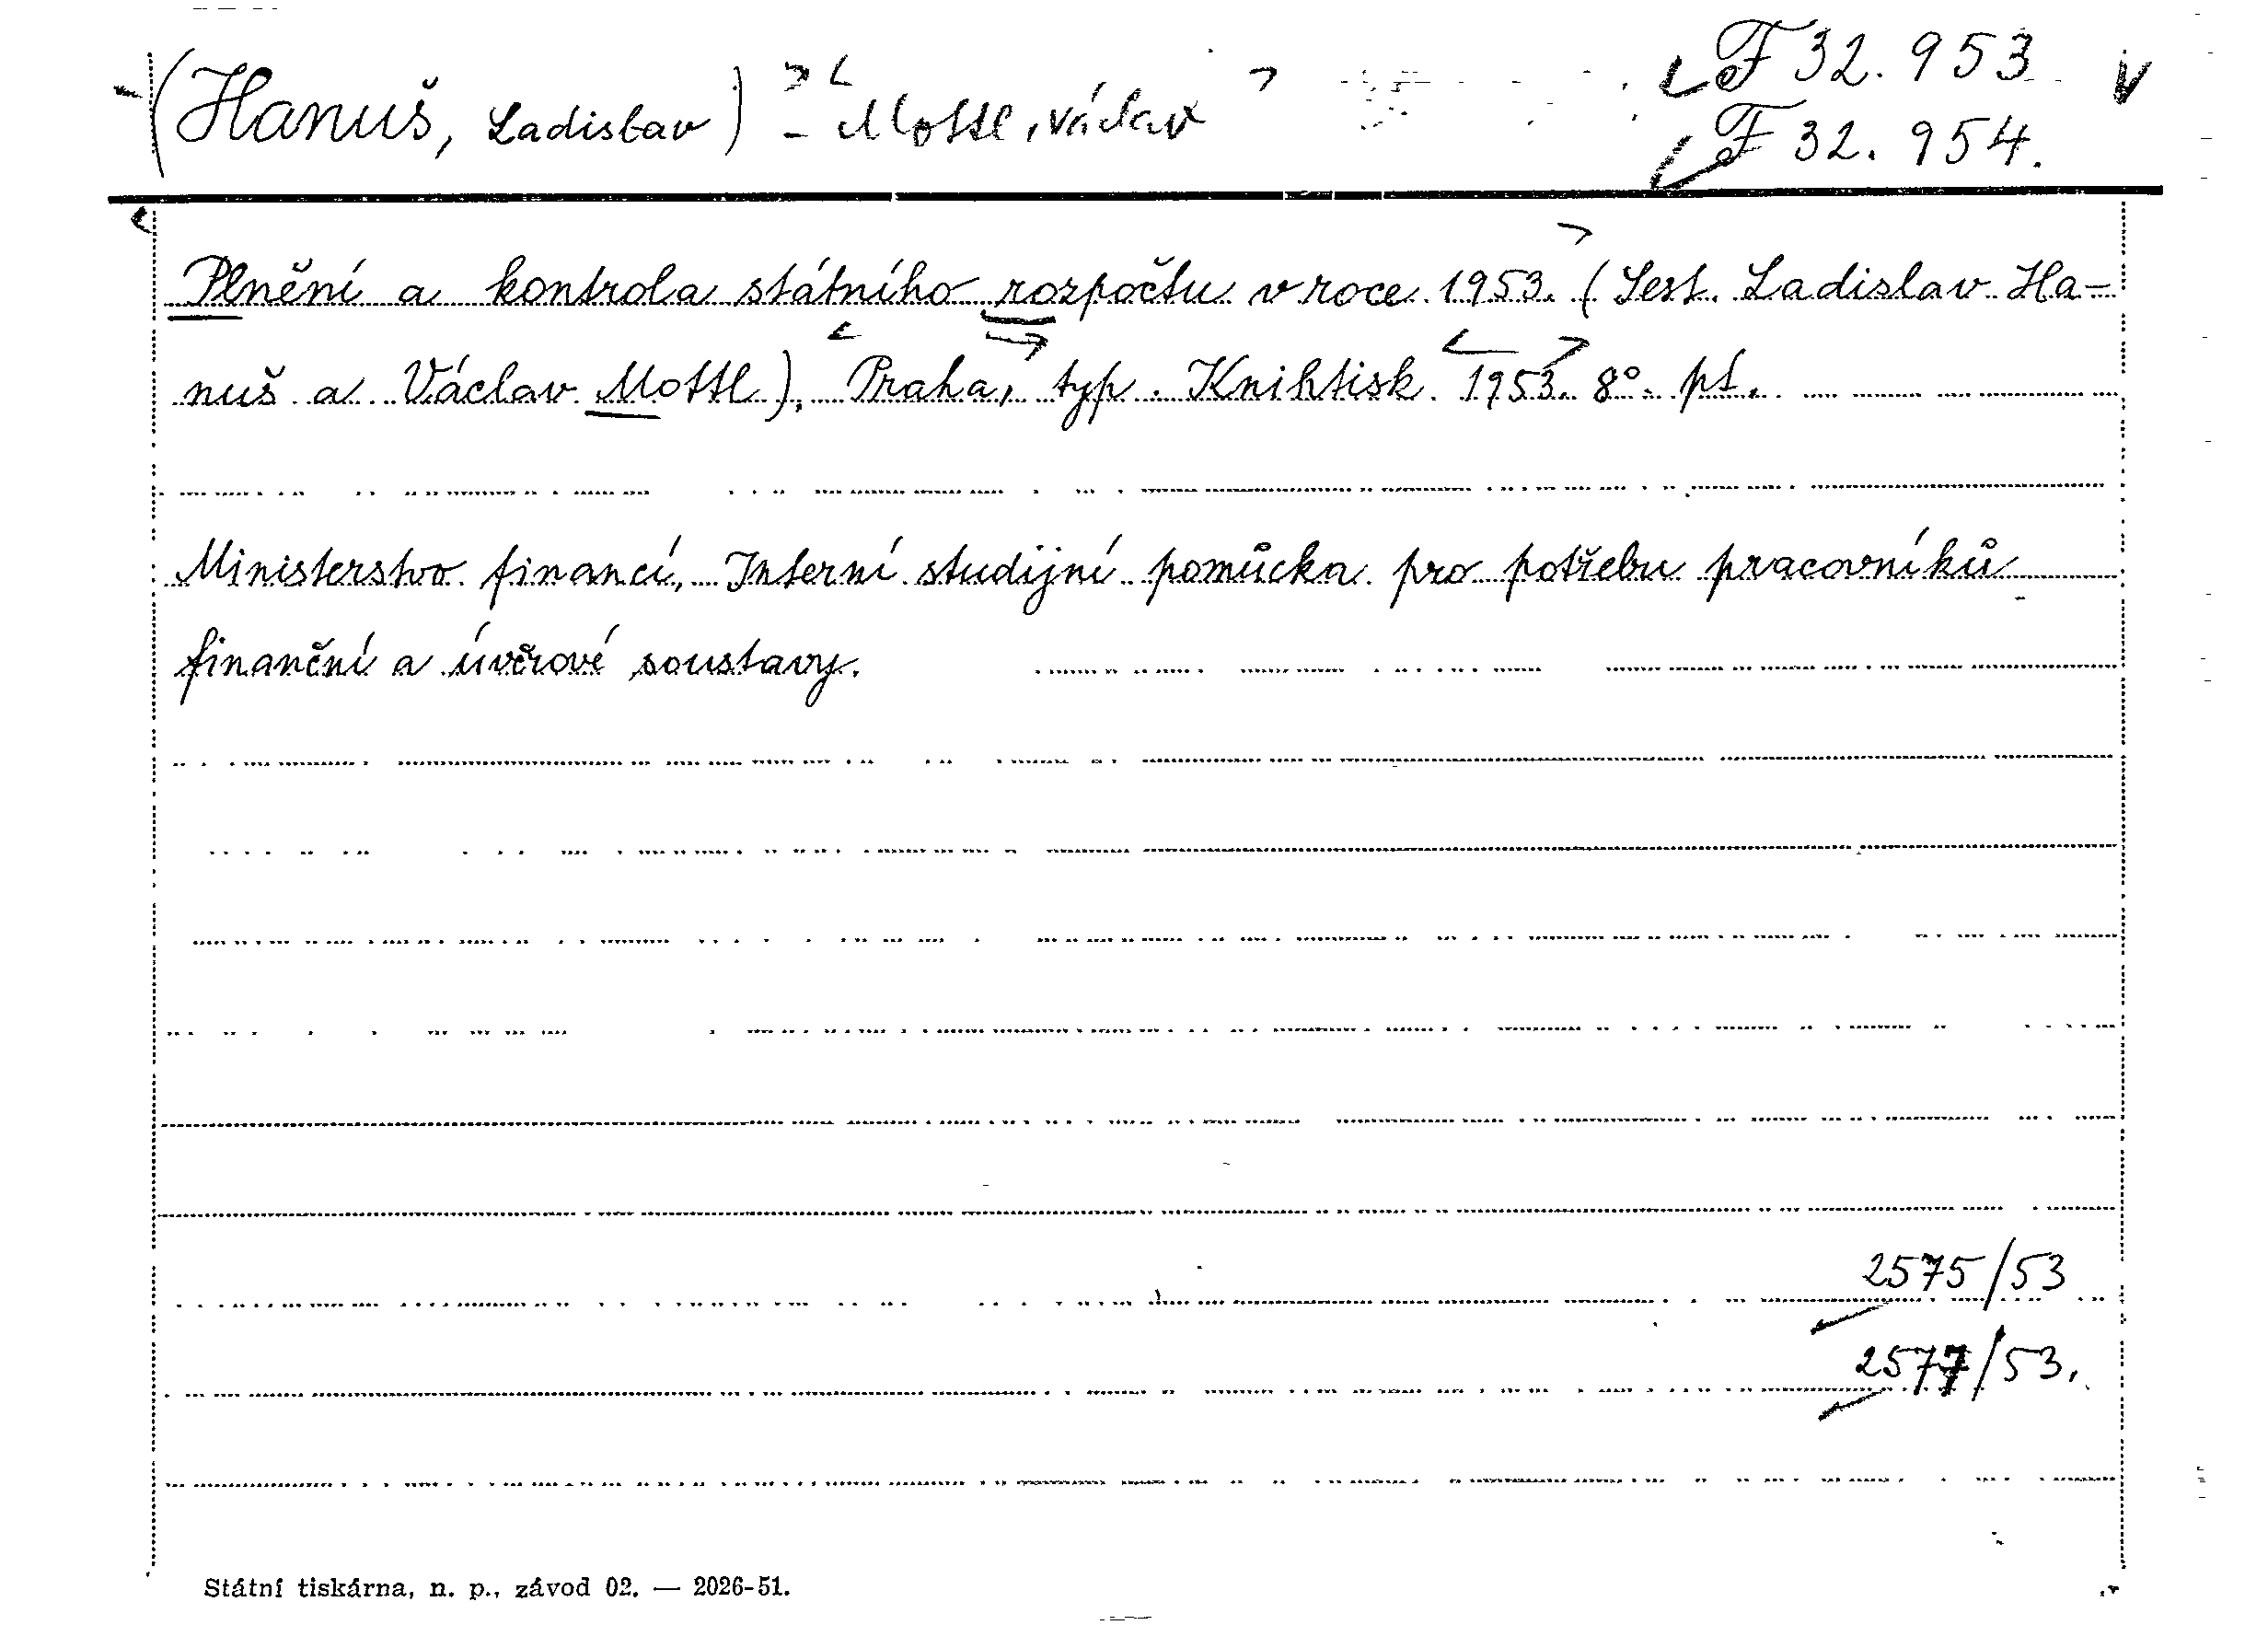 (Hanuš, Ladislav) - Mottl, Václav
F 32.953
F 32.954.
Plnění a kontrola státního rozpočtu v roce 1953. (Sest. Ladislav Ha-
nuš a Václav Mottl). Praha, typ. Knihtisk 1953. 8°. pt.
Ministerstvo financí, Interní studijní pomůcka pro potřebu pracovníků
finanční a úvěrové soustavy.
2575/53
2577/53.
Státní tiskárna, n. p., závod 02. — 2026-51.